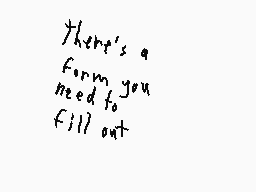 There's a
form you
need to
fill out